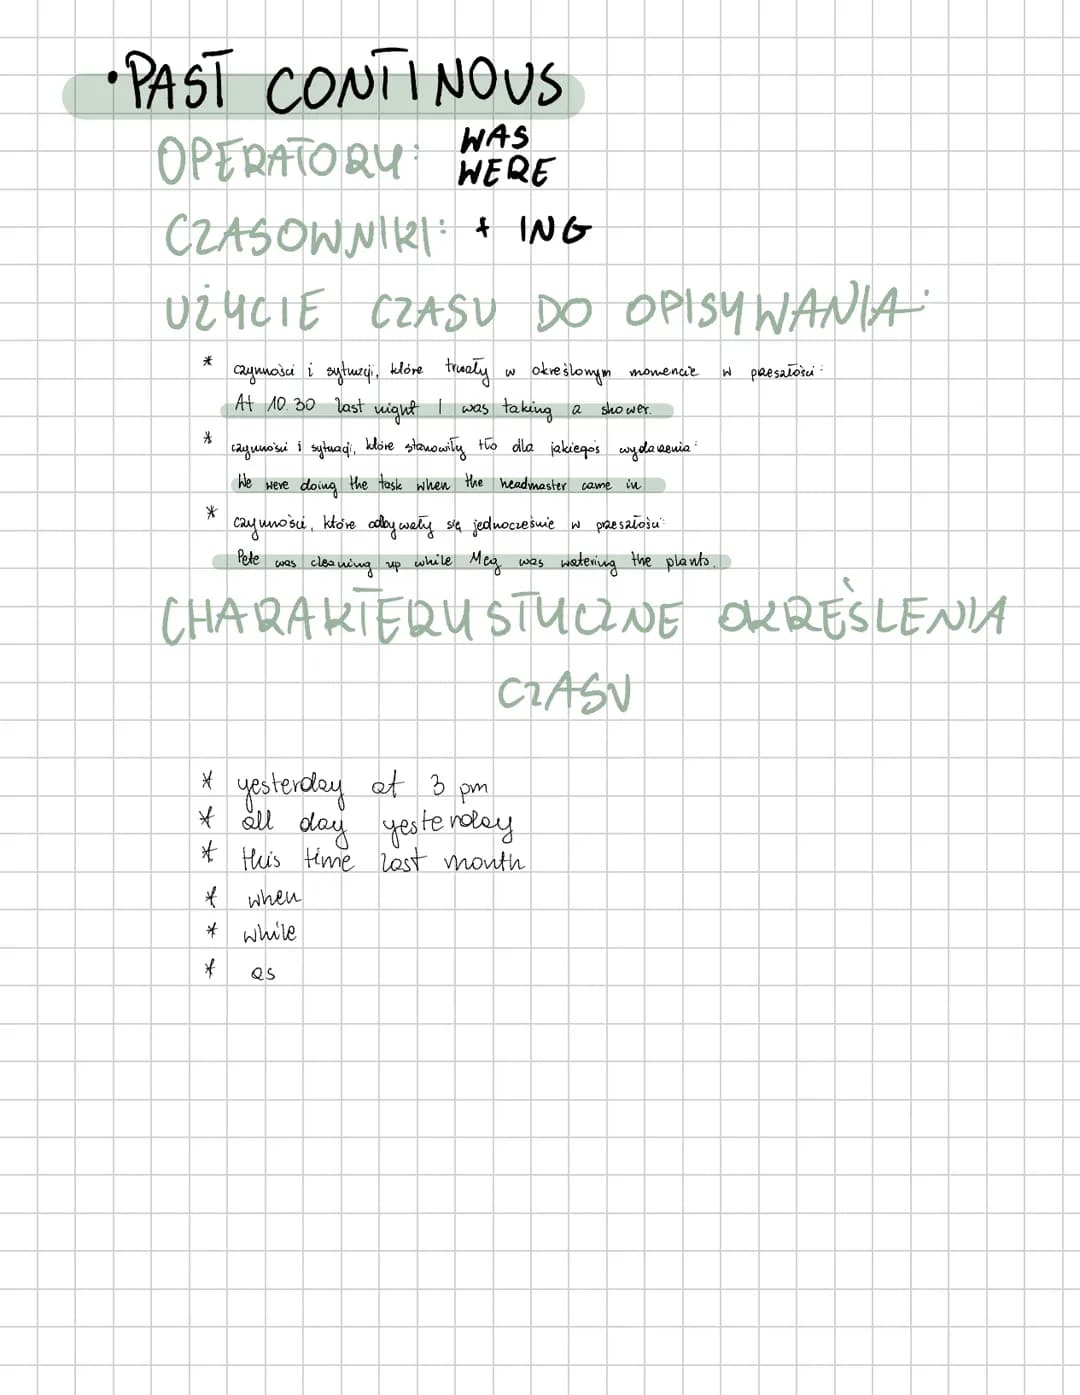 • PAST CONTINOUS
OPERATORY: WAS
WERE
CZASOWNIKI: + ING
UŻYCIE CZASU DO OPISYWANIA:
* czynności i sytuacji, które trwały w określonym momencie w przeszłości:
At 10.30 last night I was taking a shower.
* czynności i sytuacji, które stanowiły tło dla jakiegoś wydarzenia:
We were doing the task when the headmaster came in
* czynności, które odbywały się jednocześnie w przeszłości:
Pete was cleaning up while Meg was watering the plants.
CHARAKTERYSTYCZNE OKREŚLENIA
CZASU
* yesterday at 3 pm
* all day yesterday
* this time last month
* when
* while
* as